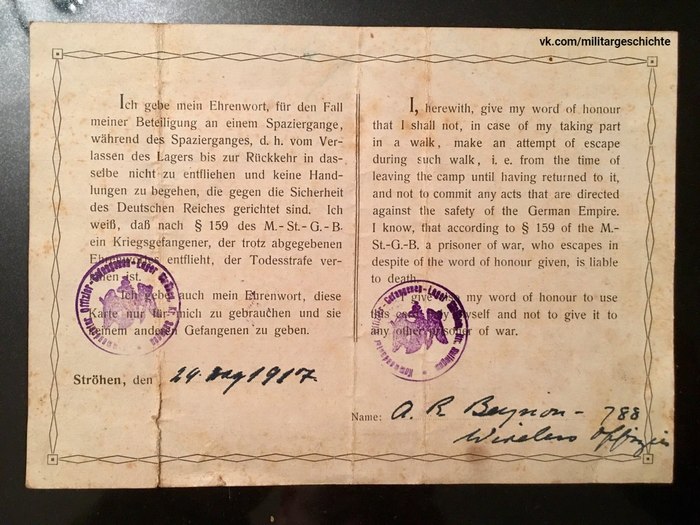 vk.com/militargeschichte
Ich gebe mein Ehrenwort, für den Fall
meiner Beteiligung an einem Spaziergange,
während des Spazierganges, d. h. vom Ver-
lassen des Lagers bis zur Rückkehr in das-
selbe nicht zu entfliehen und keine Hand-
lungen zu begehen, die gegen die Sicherheit
des Deutschen Reiches gerichtet sind. Ich
weiß, daß nach § 159 des M.-St.-G.-B.
ein Kriegsgefangener, der trotz abgegebenen
entflieht, der Todesstrafe ver-
ist.
Ich gebe auch mein Ehrenwort, diese
Karte nur für mich zu gebrauchen und sie
keinem anderen Gefangenen zu geben.
Ströhen, den 24 May 1917
I, herewith, give my word of honour
that I shall not, in case of my taking part
in a walk, make an attempt of escape
during such walk, i. e. from the time of
leaving the camp until having returned to it,
and not to commit any acts that are directed
against the safety of the German Empire.
I know, that according to § 159 of the M.-
St.-G.-B. a prisoner of war, who escapes in
despite of the word of honour given, is liable
to death.
I give my word of honour to use
this myself and not to give it to
any other prisoner of war.
Name: A. R. 788
Wireless